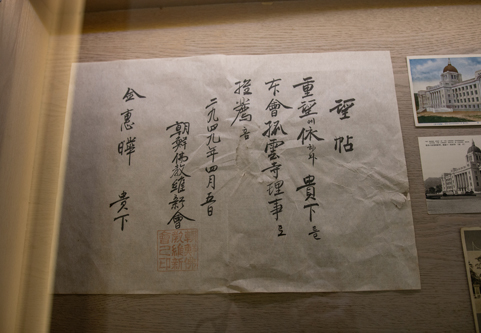 望帖
重望에 依하와 貴下를
本會孤雲寺理事로
推薦홈
二九四九年四月五日
朝鮮佛教維新會
金惠曄 貴下